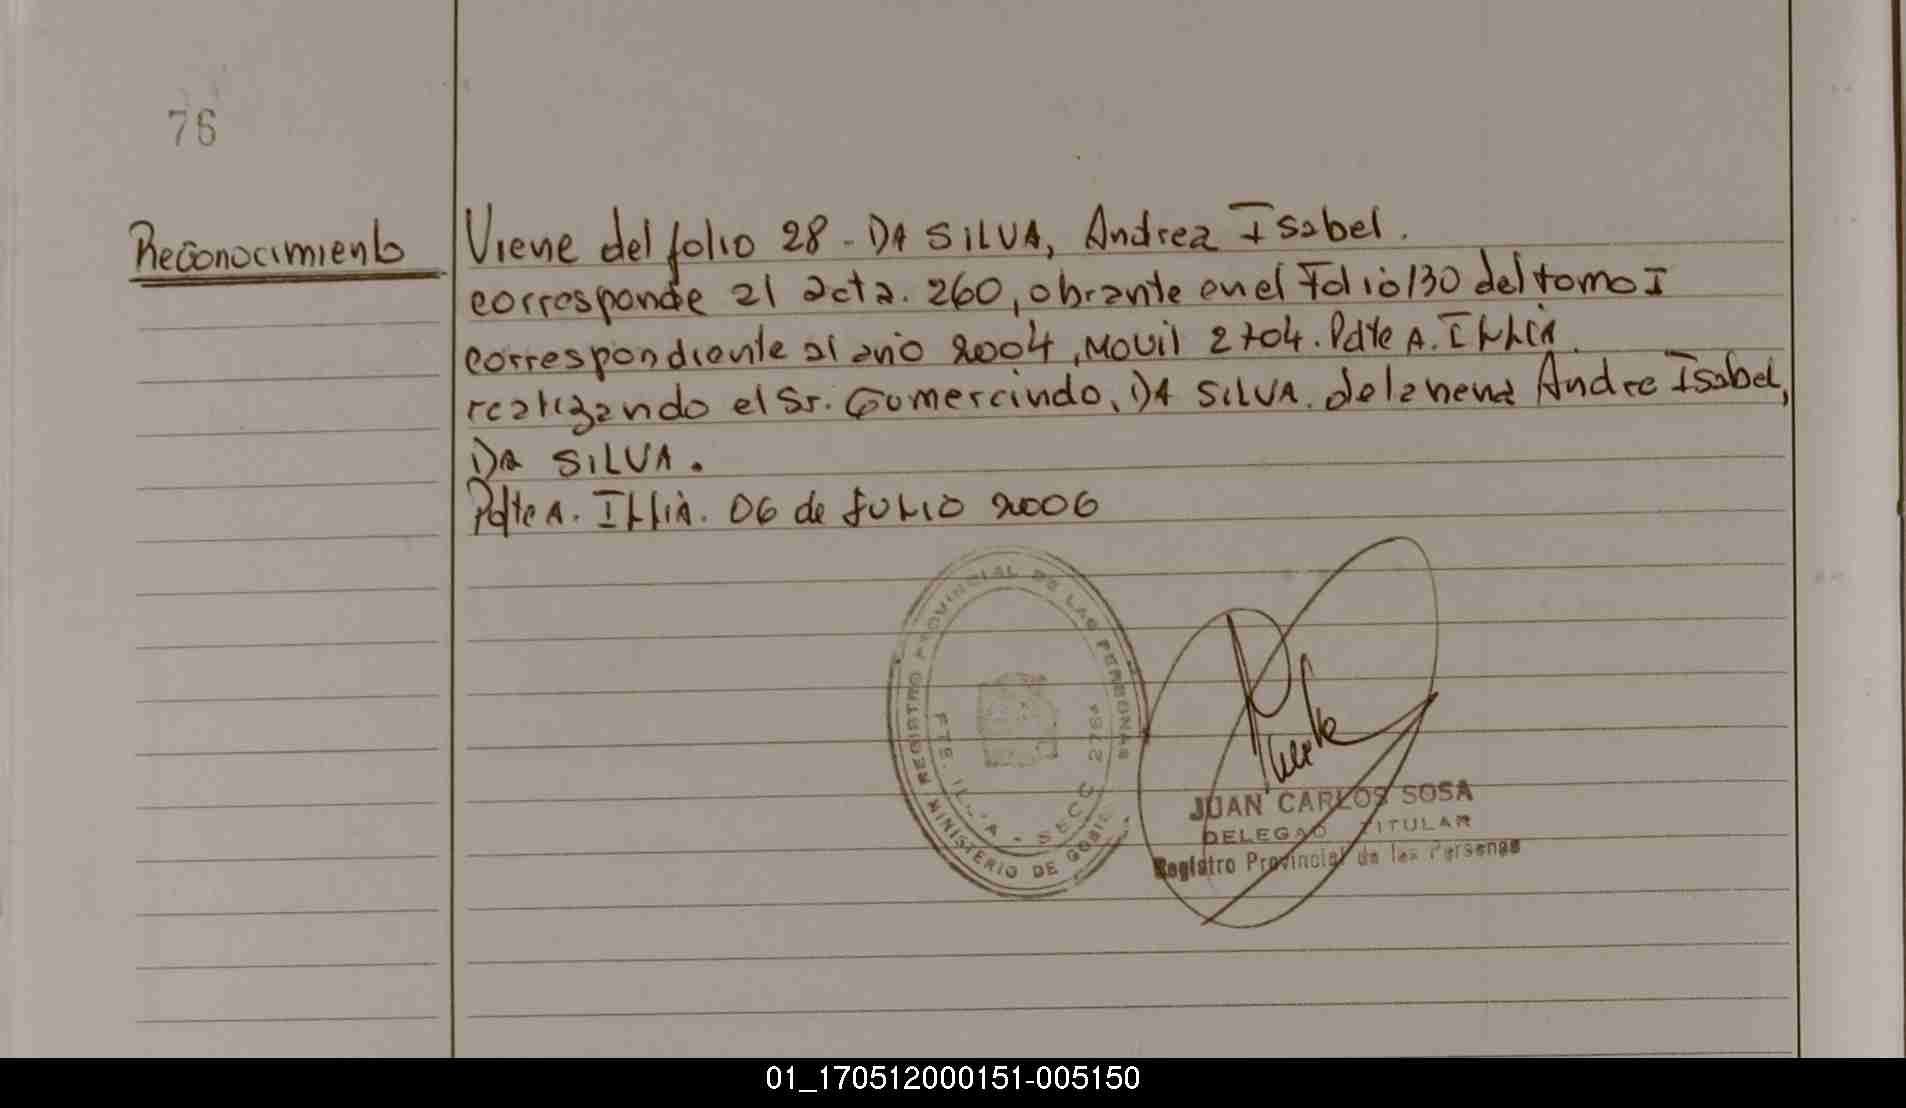 76
Reconocimiento
Viene del folio 28 - DA SILVA, Andrea Isabel.
corresponde al acta. 260, obrante en el Folio 130 del tomo I
correspondiente al año 2004, MOVIL 2704. Pdte A. ILLIA.
realizando el Sr. Gumercindo, DA SILVA. de la nena Andre Isabel,
DA SILVA.
Pdte A. ILLIA. 06 de JULIO 2006
REGISTRO PROVINCIAL DE LAS PERSONAS
MINISTERIO DE
SECC
JUAN CARLOS SOSA
DELEGADO TITULAR
Registro Provincial de las Personas
01_170512000151-005150